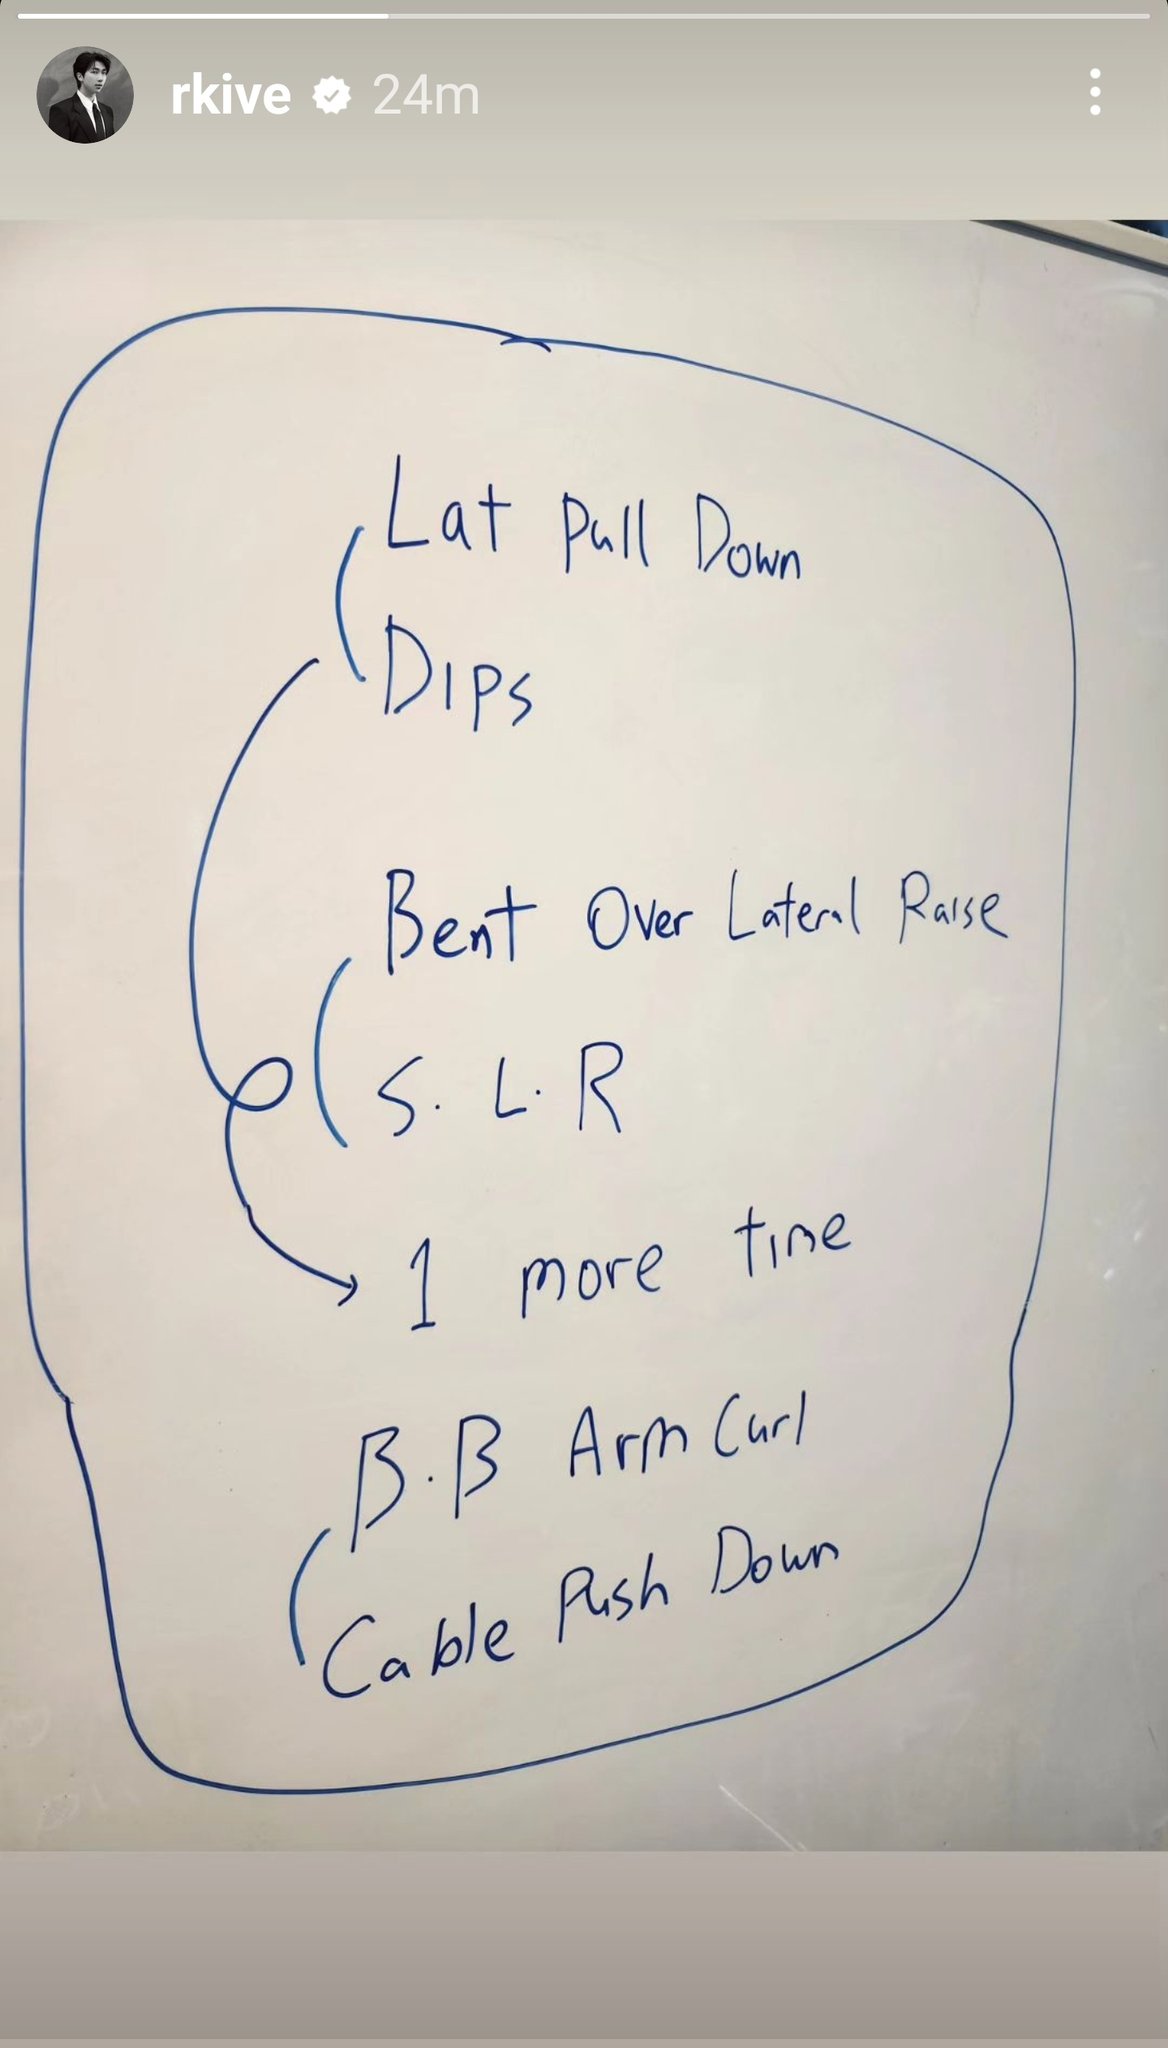 rkive 24m
Lat Pull Down
Dips
Bent Over Lateral Raise
S. L. R
1 more time
B.B Arm Curl
Cable Push Down